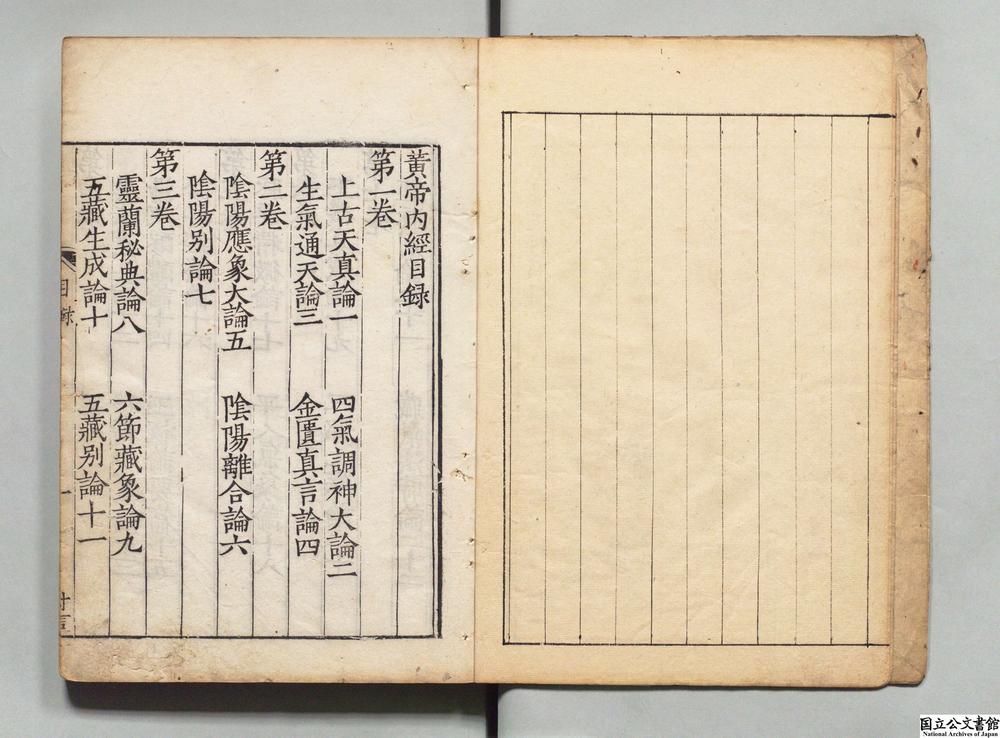 黄帝内經目録
第一卷
上古天真論一 四氣調神大論二
生氣通天論三 金匱真言論四
第二卷
陰陽應象大論五 陰陽離合論六
陰陽别論七
第三卷
靈蘭秘典論八 六節藏象論九
五藏生成論十 五藏别論十一
目録
一
国立公文書館
National Archives of Japan